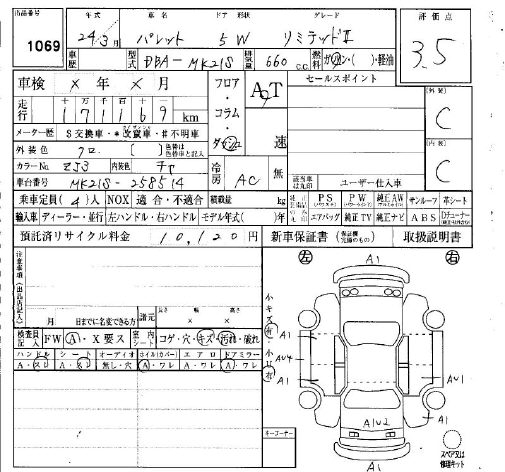 出品番号
1069
年式 車名 ドア形状 グレード
24/3月 パレット 5W リミテッドⅡ
評価点
3.5
車歴 型式 DBA-MK21S 排気量 660 c.c. 燃料 ガソリン・( )・軽油
車検 × 年 × 月
フロア・コラム・ダッシュ
A T 速
セールスポイント
(外装) C
走行 十万 万 千 百 十 一
1 7 1 1 6 9 km
メーター歴 S交換車・*改竄車・#不明車
外装色 クロ ( )
カラーNo ZJ3 内装色 チャ
冷房 AC 無
(内装) C
車台番号 MK21S-258514
該当車は丸印 ユーザー仕入車
乗車定員 (4)人 NOX 適合・不適合 積載量 kg
純正装備 PS PW 純正AW サンルーフ 革シート
輸入車 ディーラー・並行 左ハンドル・右ハンドル モデル年式( )年
エアバッグ 純正TV 純正ナビ ABS Dチューナー
預託済リサイクル料金 10,120 円
新車保証書 取扱説明書
注意事項(出品店記入)
左 A1 右
月 日までに名変できる方
諸元 長さ 幅 高さ × ×
検査員記入 FW A・X要ス 室内シート コゲ・穴・キズ・汚れ・破れ
ハンドル シート オーディオ ホイル(カバー) エアロ ドアミラー
A・スレ A・スレ 無し・穴 A・ワレ A・ワレ A・ワレ
小キズ有
小凹有
A1
AU4
A1
AU1
A1
A1U2
コーナー
スペア又は修理キット
A1